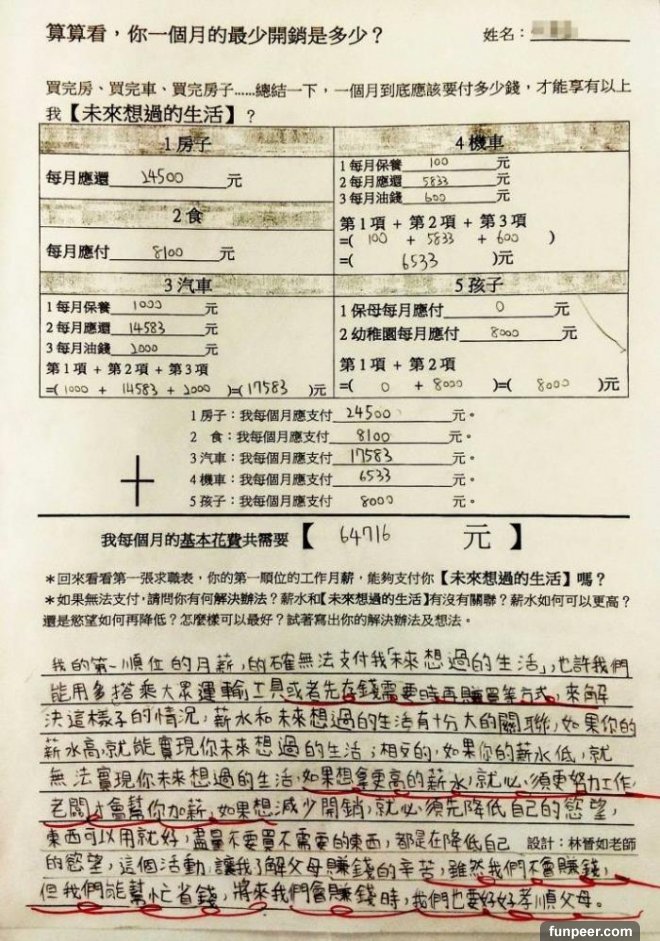 算算看，你一個月的最少開銷是多少？
姓名：
買完房、買完車、買完房子……總結一下，一個月到底應該要付多少錢，才能享有以上
我【未來想過的生活】？
1 房子
每月應還 24500 元
2 食
每月應付 8100 元
3 汽車
1 每月保養 1000 元
2 每月應還 14583 元
3 每月油錢 2000 元
第 1 項 + 第 2 項 + 第 3 項
=( 1000 + 14583 + 2000 )=( 17583 )元
4 機車
1 每月保養 100 元
2 每月應還 5833 元
3 每月油錢 600 元
第 1 項 + 第 2 項 + 第 3 項
=( 100 + 5833 + 600 )
=( 6533 )元
5 孩子
1 保母每月應付 0 元
2 幼稚園每月應付 8000 元
第 1 項 + 第 2 項
=( 0 + 8000 )=( 8000 )元
1 房子：我每個月應支付 24500 元。
2 食：我每個月應支付 8100 元。
3 汽車：我每個月應支付 17583 元。
4 機車：我每個月應支付 6533 元。
5 孩子：我每個月應支付 8000 元。
+
我每個月的基本花費共需要【 64716 元 】
*回來看看第一張求職表，你的第一順位的工作月薪，能夠支付你【未來想過的生活】嗎？
*如果無法支付，請問你有何解決辦法？薪水和【未來想過的生活】有沒有關聯？薪水如何可以更高？
還是慾望如何再降低？怎麼樣可以最好？試著寫出你的解決辦法及想法。
我的第一順位的月薪，的確無法支付我「未來想過的生活」，也許我們
能用多搭乘大眾運輸工具或者先存錢需要時再購買等方式，來解
決這樣子的情況，薪水和未來想過的生活有十分大的關聯，如果你的
薪水高，就能實現你未來想過的生活；相反的，如果你的薪水低，就
無法實現你未來想過的生活，如果想拿更高的薪水，就必須更努力工作，
老闆才會幫你加薪，如果想減少開銷，就必須先降低自己的慾望，
東西可以用就好，盡量不要買不需要的東西，都是在降低自己
設計：林晉如老師
的慾望，這個活動，讓我了解父母賺錢的辛苦，雖然我們不會賺錢，
但我們能幫忙省錢，將來我們會賺錢時，我們也要好好孝順父母。
funpeer.com